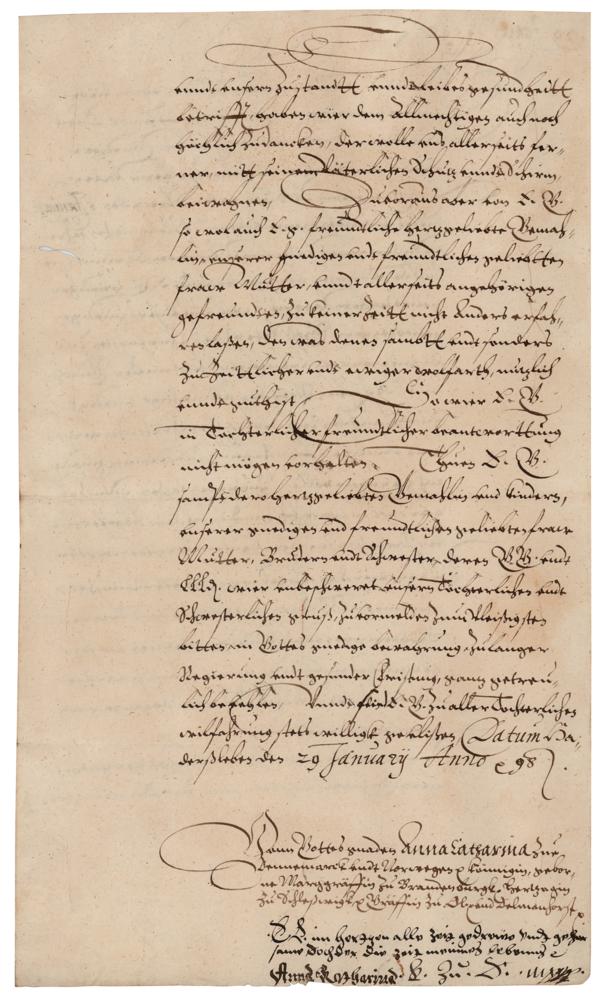 unndt unsern Zustandtt unnd leibes gesundheitt
betrifft, haben wier dem Allmechtigen auch noch
höchlich Zudancken, der wolle uns allerseits fer-
ner, mitt seinem Väterlichen Schutz unnd Schirm,
beiwagnen, Zuvoraus aber von E. G.
so wol auch E. g. freundtliche hertzgeliebte Gemah-
lin, unserer gnedigen undt freundtlichen geliebtten
fraw Mutter, unndt allerseits angehörigen
gefreunden, Zu keiner Zeitt nicht Anders erfah-
ren laßen, den was denen sambtt undt sonders
Zu Zeittlicher und ewiger wolfarth, nutzlich
unnd gutt ist, So wier E. G.
in Tochterlicher freundtlicher beantworttung
nicht mögen vorhalten. Thuen E. G.
sampt dero hertzgeliebten Gemahlin und kindern,
unserer gnedigen und freundtlichen geliebten fraw
Mutter, Brudern undt Schwester, deren G. G. undt
wier unbeschweret unsern Tochterlichen undt
Schwesterlichen gruß, Zuvormelden Zum fleißigsten
bitten, in Gottes gnedige bewahrung, Zu langer
Regierung undt gesunder fristung, gantz getreu-
lich befehlen, Unnd sein E. G. Zu aller Tochterlichen
wilfahrung stets willigk geflißen, Datum Ha-
derßleben den 29 January Anno p 98

Vonn Gottes gnaden Anna Catharina Zue
Dennemarck undt Norwegen p Königin, gebor-
ne Marggräffin Zu Brandenburgk, Hertzogin
Zu Schleßwigk p Gräffin Zu Old. und Delmenhorst p
E G im hertzen alle zeit gedrewe undt gehor
same dochter die zeit meines lebenns
Anna Katharina